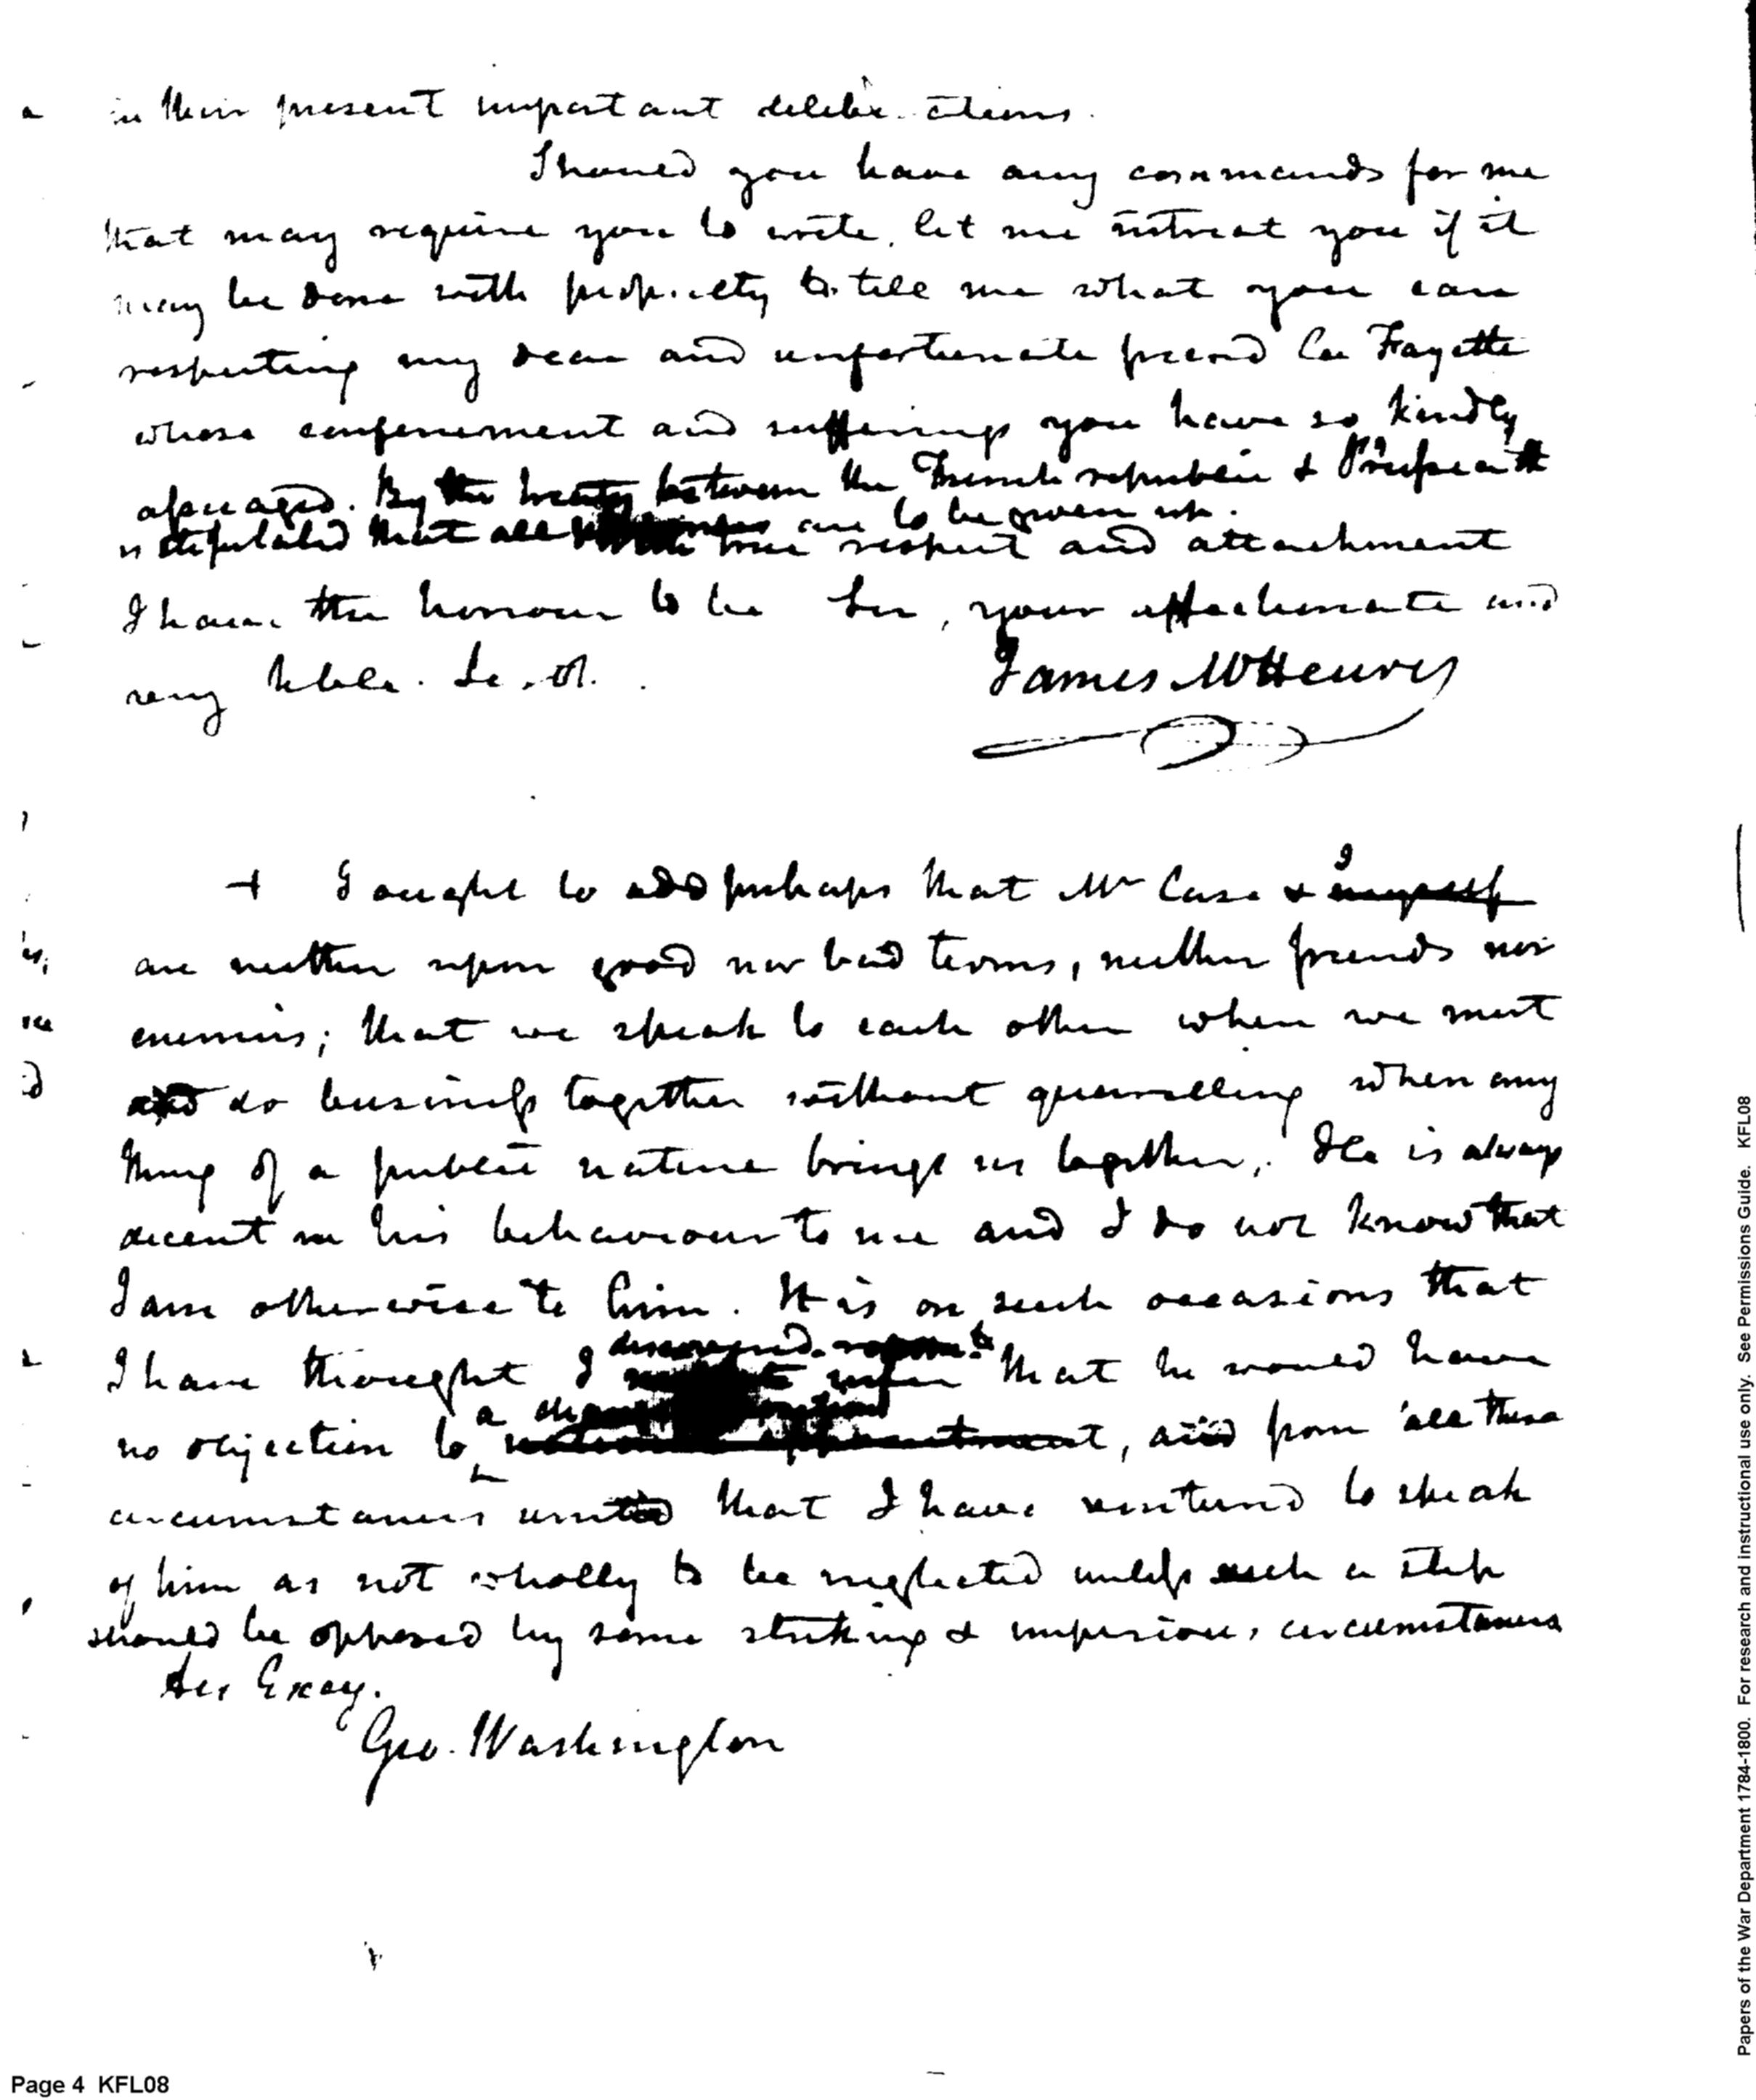 in their present important deliberations.
Should you have any commands for me
that may require you to write, let me intreat you if it
may be done with propriety to tell me what you can
respecting my dear and unfortunate friend La Fayette
whose confinement and sufferings you have so kindly
assuaged. By the treaty between the French republic & Prussia it
is stipulated that all are to be given up.
true respect and attachment
I have the honour to be Sir, your affectionate and
very hble. Se.vt.
James McHenry
+ I ought to add perhaps that Mr Case & I myself
are neither upon good nor bad terms, neither friends nor
enemies; that we speak to each other when we meet
and do business together without quarrelling when any
thing of a public nature brings us together. He is always
decent in his behaviour to me and I do not know that
I am otherwise to him. It is on such occasions that
discovered
I have thought I that he would have
a
no objection to appointment, and from all these
circumstances united that I have ventured to speak
of him as not wholly to be neglected unless such a step
should be opposed by some striking & imperious circumstances
His Excy.
Geo. Washington
Page 4 KFL08
Papers of the War Department 1784-1800. For research and instructional use only. See Permissions Guide. KFL08